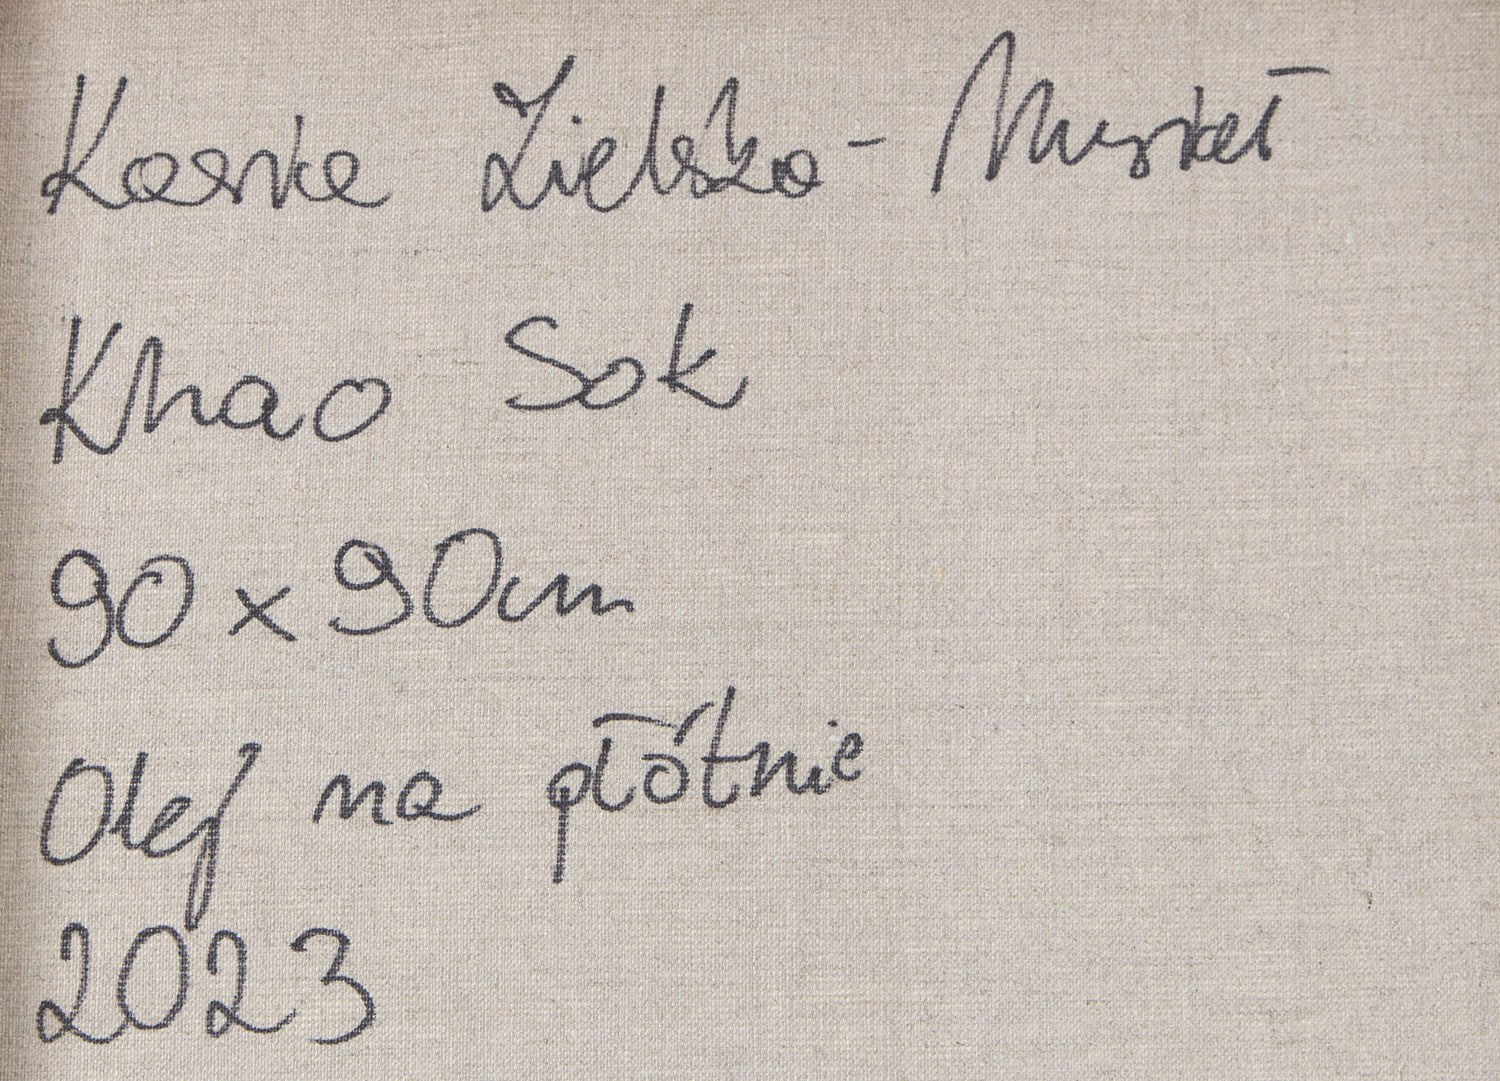 Kaśka Zielsko-Myrkał
Khao Sok
90 x 90cm
Olej na płótnie
2023